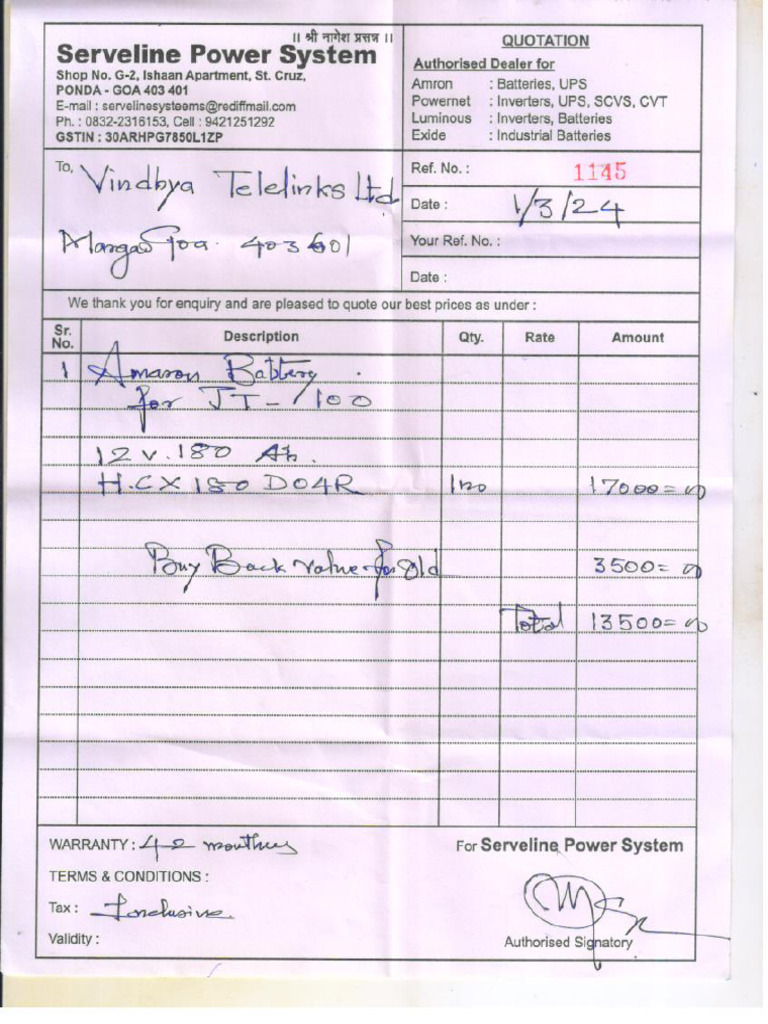 ।। श्री नागेश प्रसन्न ।।
Serveline Power System
Shop No. G-2, Ishaan Apartment, St. Cruz,
PONDA - GOA 403 401
E-mail : servelinesysteems@rediffmail.com
Ph. : 0832-2316153, Cell : 9421251292
GSTIN : 30ARHPG7850L1ZP
QUOTATION
Authorised Dealer for
Amron : Batteries, UPS
Powernet : Inverters, UPS, SCVS, CVT
Luminous : Inverters, Batteries
Exide : Industrial Batteries
To, Vindhya Telelinks Ltd
Margao Goa. 403 601
Ref. No. : 1145
Date : 1/3/24
Your Ref. No. :
Date :
We thank you for enquiry and are pleased to quote our best prices as under :
Sr. No. Description Qty. Rate Amount
1 Amaron Battery
for JT-100
12 V. 180 Ah.
H.CX 180 D04R 1no 17000=00
Buy Back value for old 3500=00
Total 13500=00
WARRANTY : 42 months
TERMS & CONDITIONS :
Tax : Inclusive.
Validity :
For Serveline Power System
Authorised Signatory